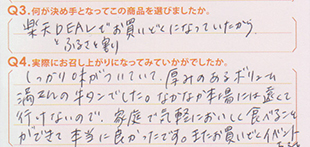 Q3.何が決め手となってこの商品を選びましたか。
楽天DEALでお買いどくになっていたから
とふるさと割り
Q4.実際にお召し上がりになってみていかがでしたか。
しっかり味がついていて、厚みのあるボリューム
満てんの牛タンでした。なかなか本場には遠くて
行けないので、家庭で気軽においしく食べること
ができて本当に良かったです。またお買いどくイベント